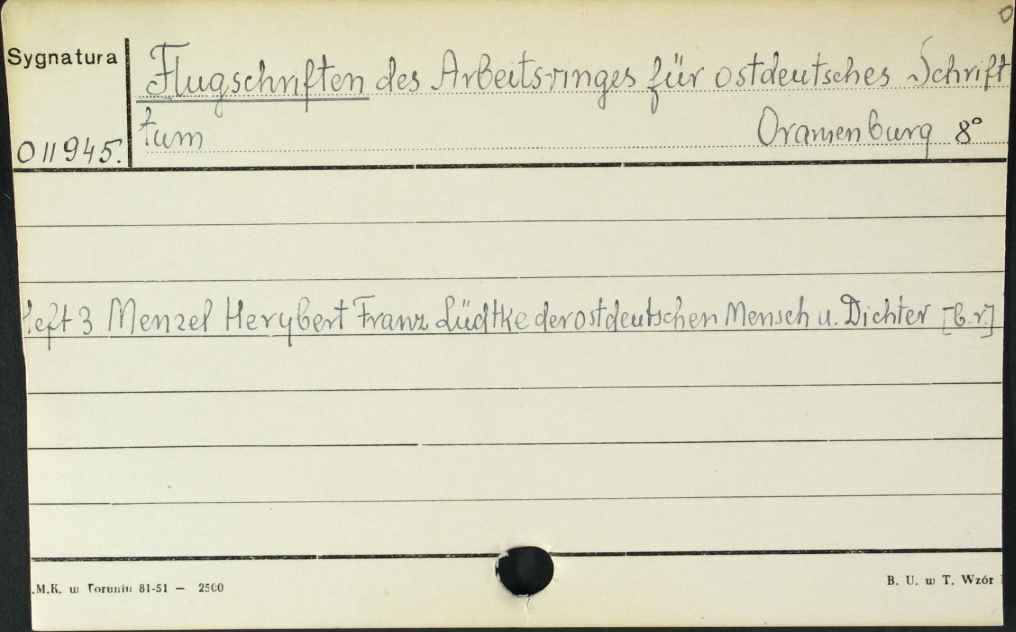 0
Sygnatura
Flugschriften des Arbeitsringes für ostdeutsches Schrift
011945.
tum Oranienburg 8°
Heft 3 Menzel Herybert Franz Lüdtke der ostdeutschen Mensch u. Dichter [b.r.]
.M.K. w Toruniu 81-51 — 2500
B. U. w T. Wzór